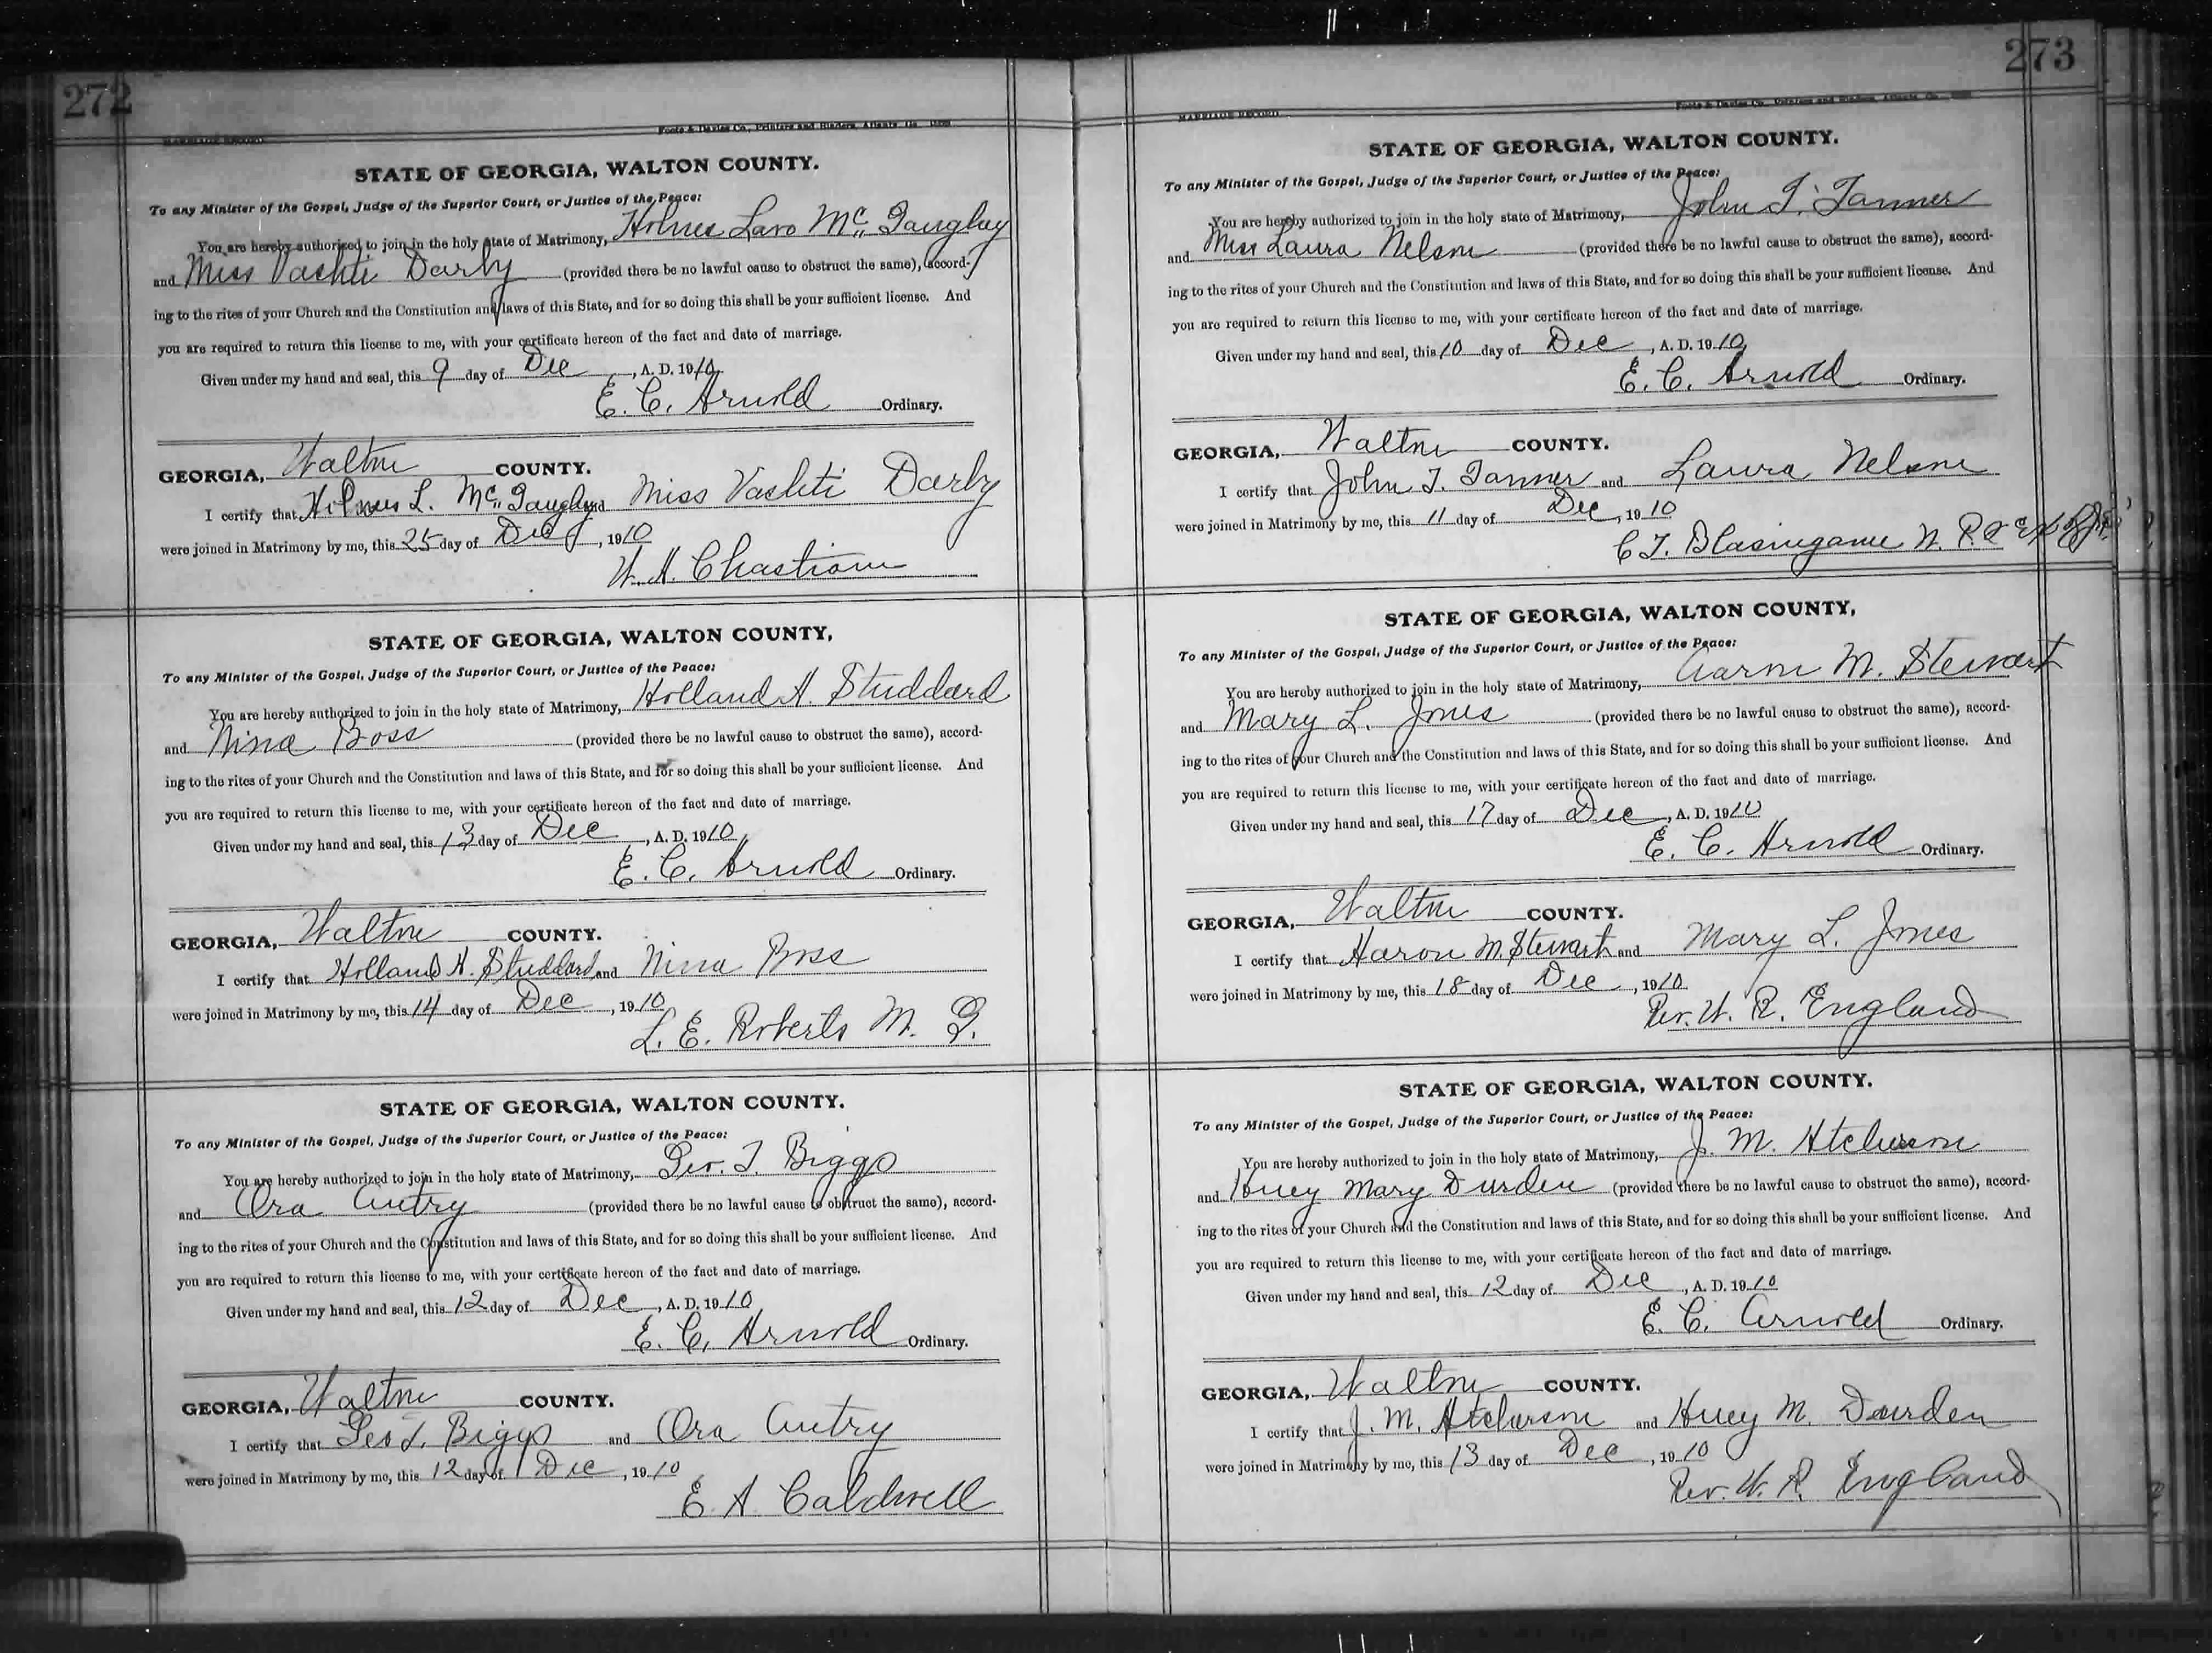 272
MARRIAGE RECORD. Foote & Davies Co., Printers and Binders, Atlanta, Ga.
STATE OF GEORGIA, WALTON COUNTY.
To any Minister of the Gospel, Judge of the Superior Court, or Justice of the Peace:
You are hereby authorized to join in the holy state of Matrimony, Holmes Lavo McGaughey
and Miss Vashti Darby (provided there be no lawful cause to obstruct the same), accord-
ing to the rites of your Church and the Constitution and laws of this State, and for so doing this shall be your sufficient license. And
you are required to return this license to me, with your certificate hereon of the fact and date of marriage.
Given under my hand and seal, this 9 day of Dec, A. D. 1910
E. C. Arnold Ordinary.
GEORGIA, Walton COUNTY.
I certify that Holmes L. McGaughey and Miss Vashti Darby
were joined in Matrimony by me, this 25 day of Dec, 1910
W. H. Chastain
STATE OF GEORGIA, WALTON COUNTY,
To any Minister of the Gospel, Judge of the Superior Court, or Justice of the Peace:
You are hereby authorized to join in the holy state of Matrimony, Holland H. Studdard
and Nina Boss (provided there be no lawful cause to obstruct the same), accord-
ing to the rites of your Church and the Constitution and laws of this State, and for so doing this shall be your sufficient license. And
you are required to return this license to me, with your certificate hereon of the fact and date of marriage.
Given under my hand and seal, this 13 day of Dec, A. D. 1910
E. C. Arnold Ordinary.
GEORGIA, Walton COUNTY.
I certify that Holland H. Studdard and Nina Boss
were joined in Matrimony by me, this 14 day of Dec, 1910
L. E. Roberts M. G.
STATE OF GEORGIA, WALTON COUNTY.
To any Minister of the Gospel, Judge of the Superior Court, or Justice of the Peace:
You are hereby authorized to join in the holy state of Matrimony, Geo. T. Biggs
and Ora Autry (provided there be no lawful cause to obstruct the same), accord-
ing to the rites of your Church and the Constitution and laws of this State, and for so doing this shall be your sufficient license. And
you are required to return this license to me, with your certificate hereon of the fact and date of marriage.
Given under my hand and seal, this 12 day of Dec, A. D. 1910
E. C. Arnold Ordinary.
GEORGIA, Walton COUNTY.
I certify that Geo T. Biggs and Ora Autry
were joined in Matrimony by me, this 12 day of Dec, 1910
E A Caldwell
273
MARRIAGE RECORD. Foote & Davies Co., Printers and Binders, Atlanta, Ga.
STATE OF GEORGIA, WALTON COUNTY.
To any Minister of the Gospel, Judge of the Superior Court, or Justice of the Peace:
You are hereby authorized to join in the holy state of Matrimony, John T. Tanner
and Miss Laura Nelson (provided there be no lawful cause to obstruct the same), accord-
ing to the rites of your Church and the Constitution and laws of this State, and for so doing this shall be your sufficient license. And
you are required to return this license to me, with your certificate hereon of the fact and date of marriage.
Given under my hand and seal, this 10 day of Dec, A. D. 1910
E. C. Arnold Ordinary.
GEORGIA, Walton COUNTY.
I certify that John T. Tanner and Laura Nelson
were joined in Matrimony by me, this 11 day of Dec, 1910
C T. Blasingame N. P. & Ex
STATE OF GEORGIA, WALTON COUNTY,
To any Minister of the Gospel, Judge of the Superior Court, or Justice of the Peace:
You are hereby authorized to join in the holy state of Matrimony, Aaron M. Stewart
and Mary L. Jones (provided there be no lawful cause to obstruct the same), accord-
ing to the rites of your Church and the Constitution and laws of this State, and for so doing this shall be your sufficient license. And
you are required to return this license to me, with your certificate hereon of the fact and date of marriage.
Given under my hand and seal, this 17 day of Dec, A. D. 1910
E. C. Arnold Ordinary.
GEORGIA, Walton COUNTY.
I certify that Aaron M. Stewart and Mary L. Jones
were joined in Matrimony by me, this 18 day of Dec, 1910
Rev. W. R. England
STATE OF GEORGIA, WALTON COUNTY.
To any Minister of the Gospel, Judge of the Superior Court, or Justice of the Peace:
You are hereby authorized to join in the holy state of Matrimony, J. M. Atcherson
and Huey Mary Durden (provided there be no lawful cause to obstruct the same), accord-
ing to the rites of your Church and the Constitution and laws of this State, and for so doing this shall be your sufficient license. And
you are required to return this license to me, with your certificate hereon of the fact and date of marriage.
Given under my hand and seal, this 12 day of Dec, A. D. 1910
E. C. Arnold Ordinary.
GEORGIA, Walton COUNTY.
I certify that J. M. Atcherson and Huey M. Daurden
were joined in Matrimony by me, this 13 day of Dec, 1910
Rev. W. R. England